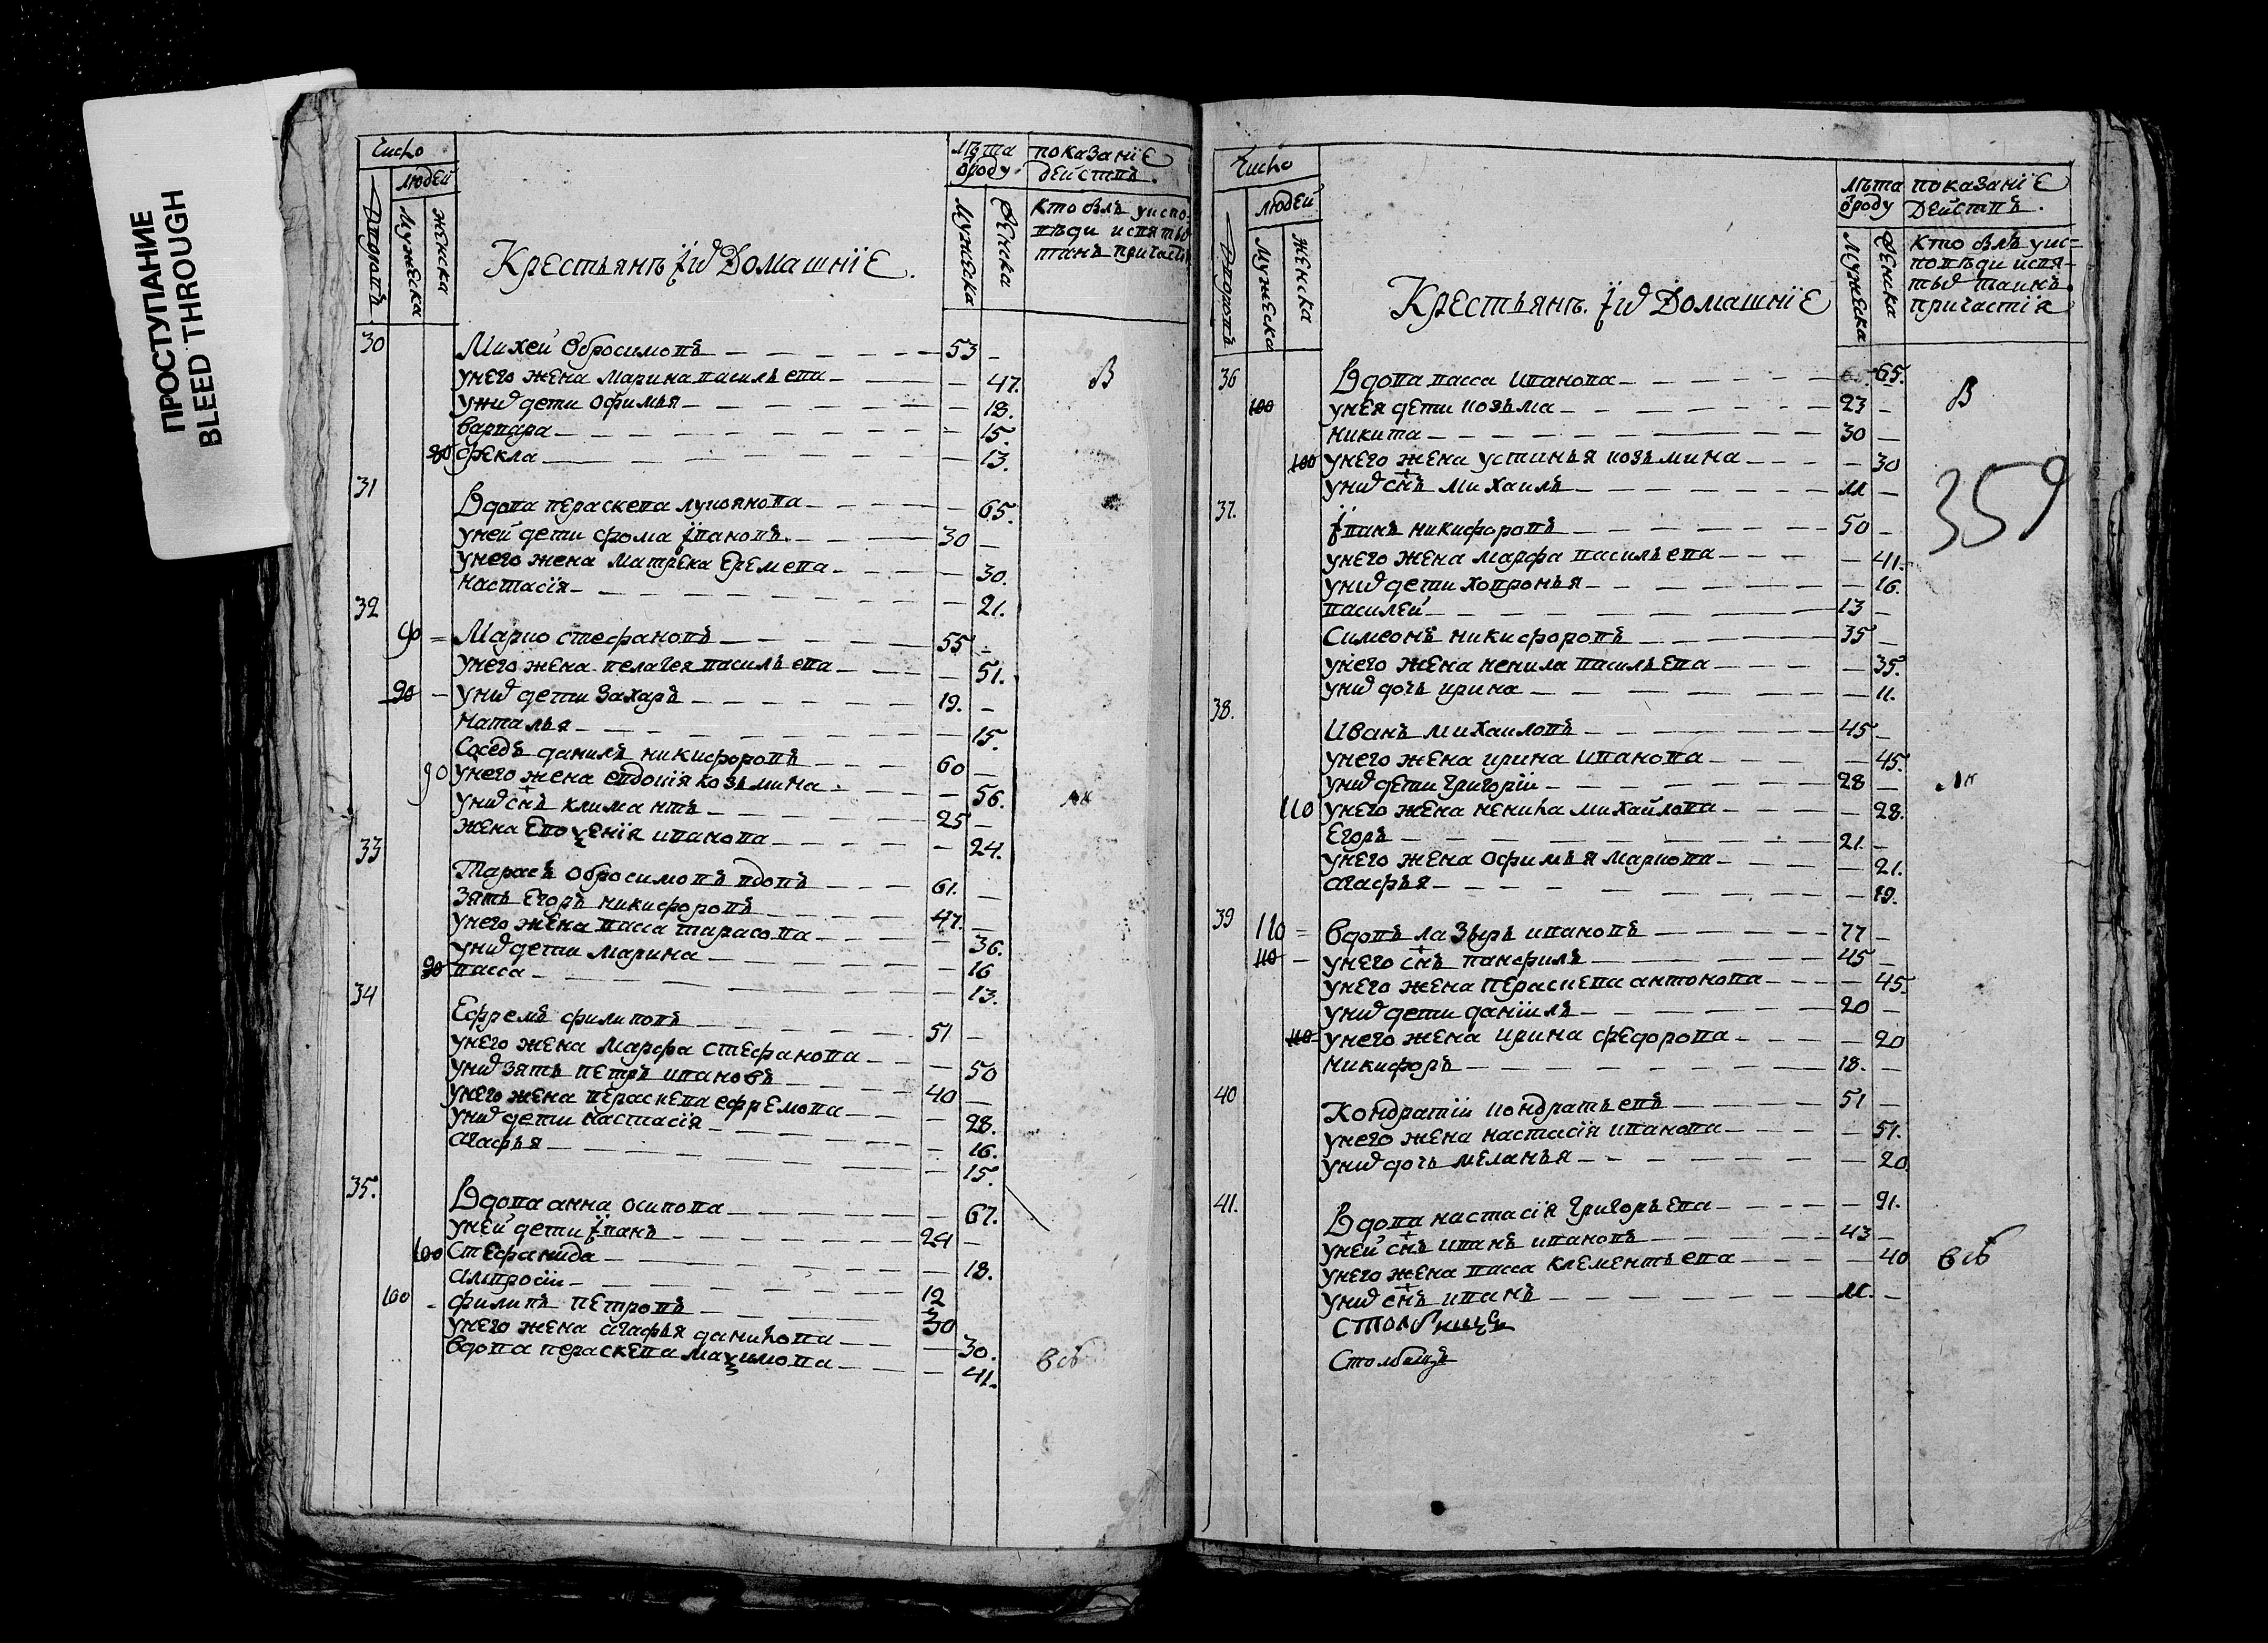 ПРОСТУПАНИЕ
BLEED THROUGH
Число
людей
Дворовъ
Мужеска
женска
Крестьянъ їихъ Домашнїе.
лѣта
ѿроду
Мужеска
Женска
показанїе
дѣйствъ.
кто былъ уиспо-
вѣди исвятыхъ
таинъ причастїя
30 Михеи Обросимовъ 53
унего жена марина васильева 47. В
унихъ дети офимья 18.
варвара 15.
80 фекла 13.
31 Вдова пераскева лукоянова 65.
уней дети фома ївановъ 30
унего жена матрека Еремева 30.
настасія 21.
32 90 = Марко стефановъ 55
унего жена пелагея васильева 51.
90 – унихъ дети захаръ 19.
наталья 15.
Соседъ данилъ никифоровъ 60
90 унего жена евдокія козьмина 56.
унихъ снъ климантъ 25
жена Евоѯенія иванова 24.
33 Тарасъ Обросимовъ вдовъ 61.
зять Егоръ никифоровъ 47.
унего жена васса тарасова 36.
унихъ дети марина 16
90 васса 13.
34 Ефремъ филиповъ 51
унего жена марфа стефанова 50
унихъ зять петръ ивановъ 40
унего жена пераскева ефремова 28.
унихъ дети настасія 16.
агафья 15.
35. Вдова анна осипова 67.
уней дети їванъ 24
100 Стефанида 18.
амвросіи 12
100 - филипъ петровъ 30
унего жена агафья данилова 30.
вдова пераскева маѯимова 41.
Число
людей
Дворовъ
Мужеска
женска
Крестьянъ. їихъ Домашнїе
лѣта
ѿроду
Мужеска
Женска
показанїе
дѣйствъ.
кто былъ уис-
повѣди исвя-
тыхъ таинъ
причастїя
36 Вдова васса иванова 65.
100 унея дети козьма 23 В
никита 30
100 унего жена устинья козьмина 30
унихъ снъ михаилъ 11
359
37. їванъ никифоровъ 50
унего жена марфа васильева 41.
унихъ дети ховронья 16.
василей 13
Симеонъ никифоровъ 35
унего жена ненила васильева 35.
унихъ дочь ирина 11.
38. Иванъ михаиловъ 45
унего жена ирина иванова 45.
унихъ дети григоріи 28
110 унего жена ненила михайлова 28.
Егоръ 21.
унего жена офимья маркова 21.
агафья 19.
39 110 = вдовъ лазырь ивановъ 77
110 – унего снъ панфилъ 45
унего жена пераскева антонова 45.
унихъ дети даніилъ 20
110 унего жена ирина федорова 20
никифоръ 18.
40 Кондратіи кондратьевъ 51
унего жена настасія иванова 51.
унихъ дочь меланья 20
41. Вдова настасія григорьева 91.
уней снъ иванъ ивановъ 43
унего жена васса клементьева 40
унихъ снъ иванъ 11.